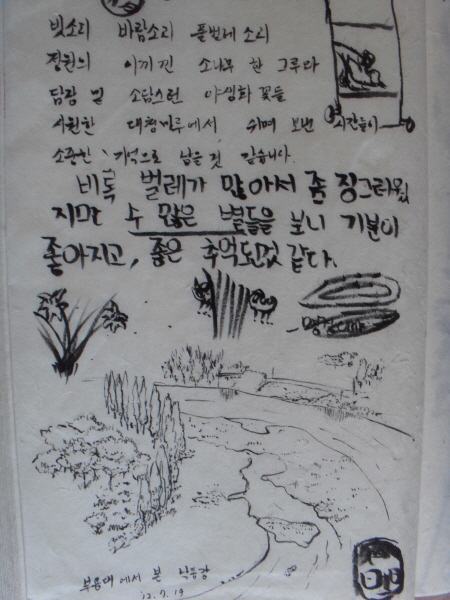 빗소리 바람소리 풀벌레 소리
정원의 이끼낀 소나무 한 그루와
담장 밑 소담스런 야생화 꽃들
시원한 대청마루에서 쉬며 보낸 시간들이
소중한 기억으로 남을것 같습니다.
비록 벌레가 많아서 좀 징그러웠
지만 수 많은 별들을 보니 기분이
좋아지고, 좋은 추억도된것 같다.
부용대에서 본 낙동강
'12.7.19